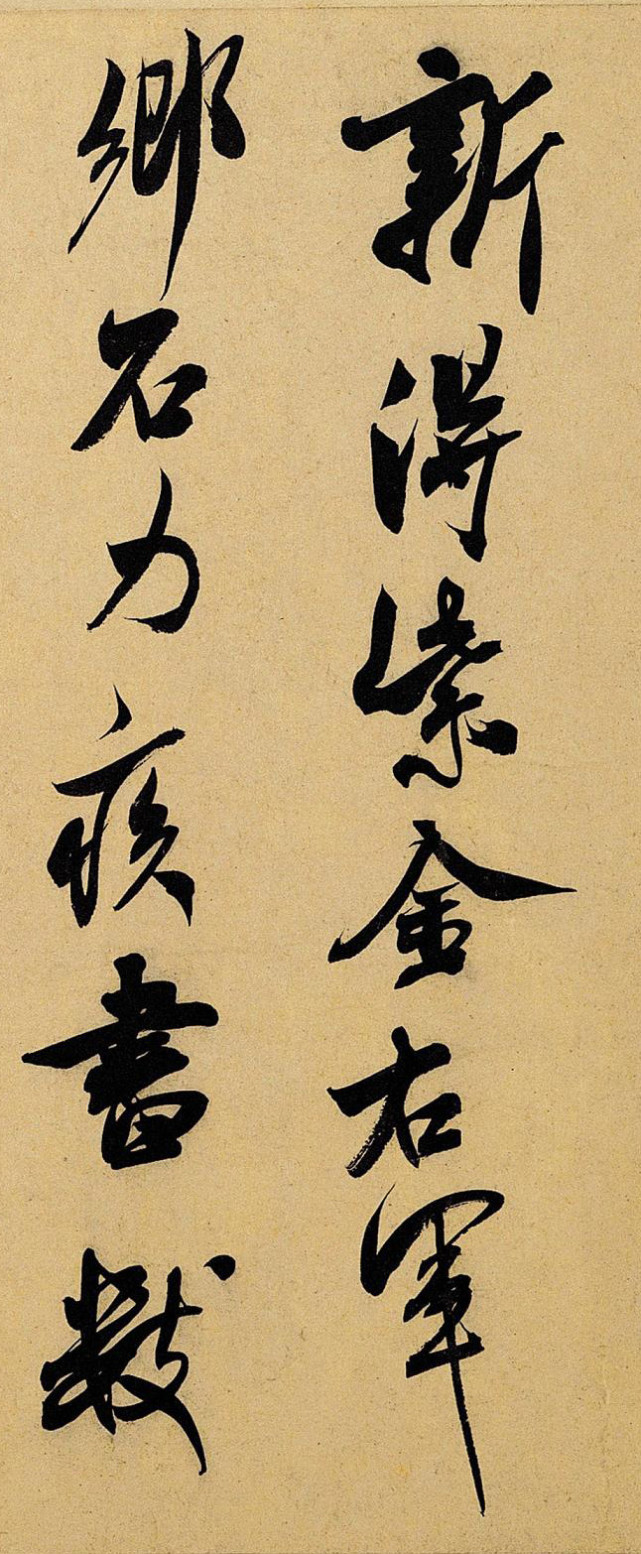 新得紫金右軍
鄉石力疾書數